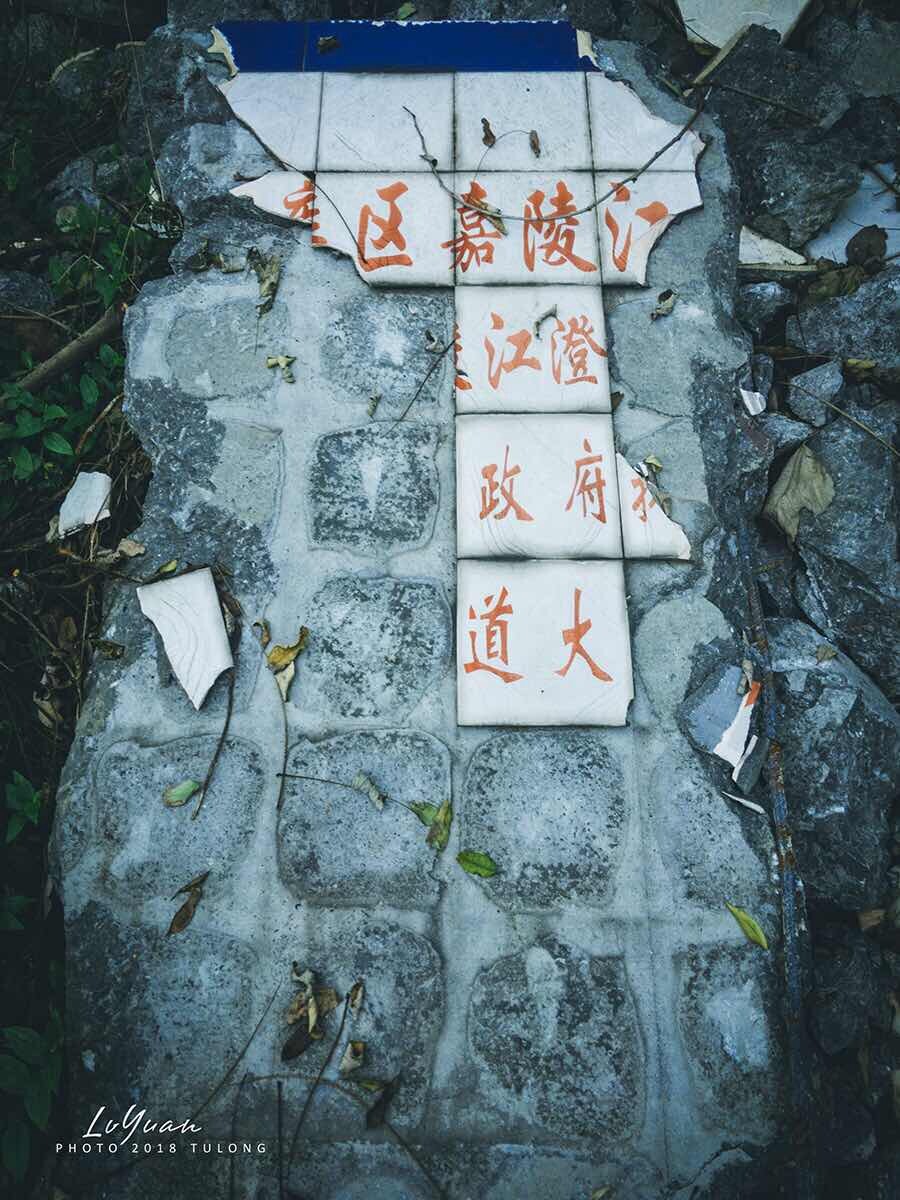 区嘉陵江
江澄
政府
道大
LvYuan
PHOTO 2018 TULONG